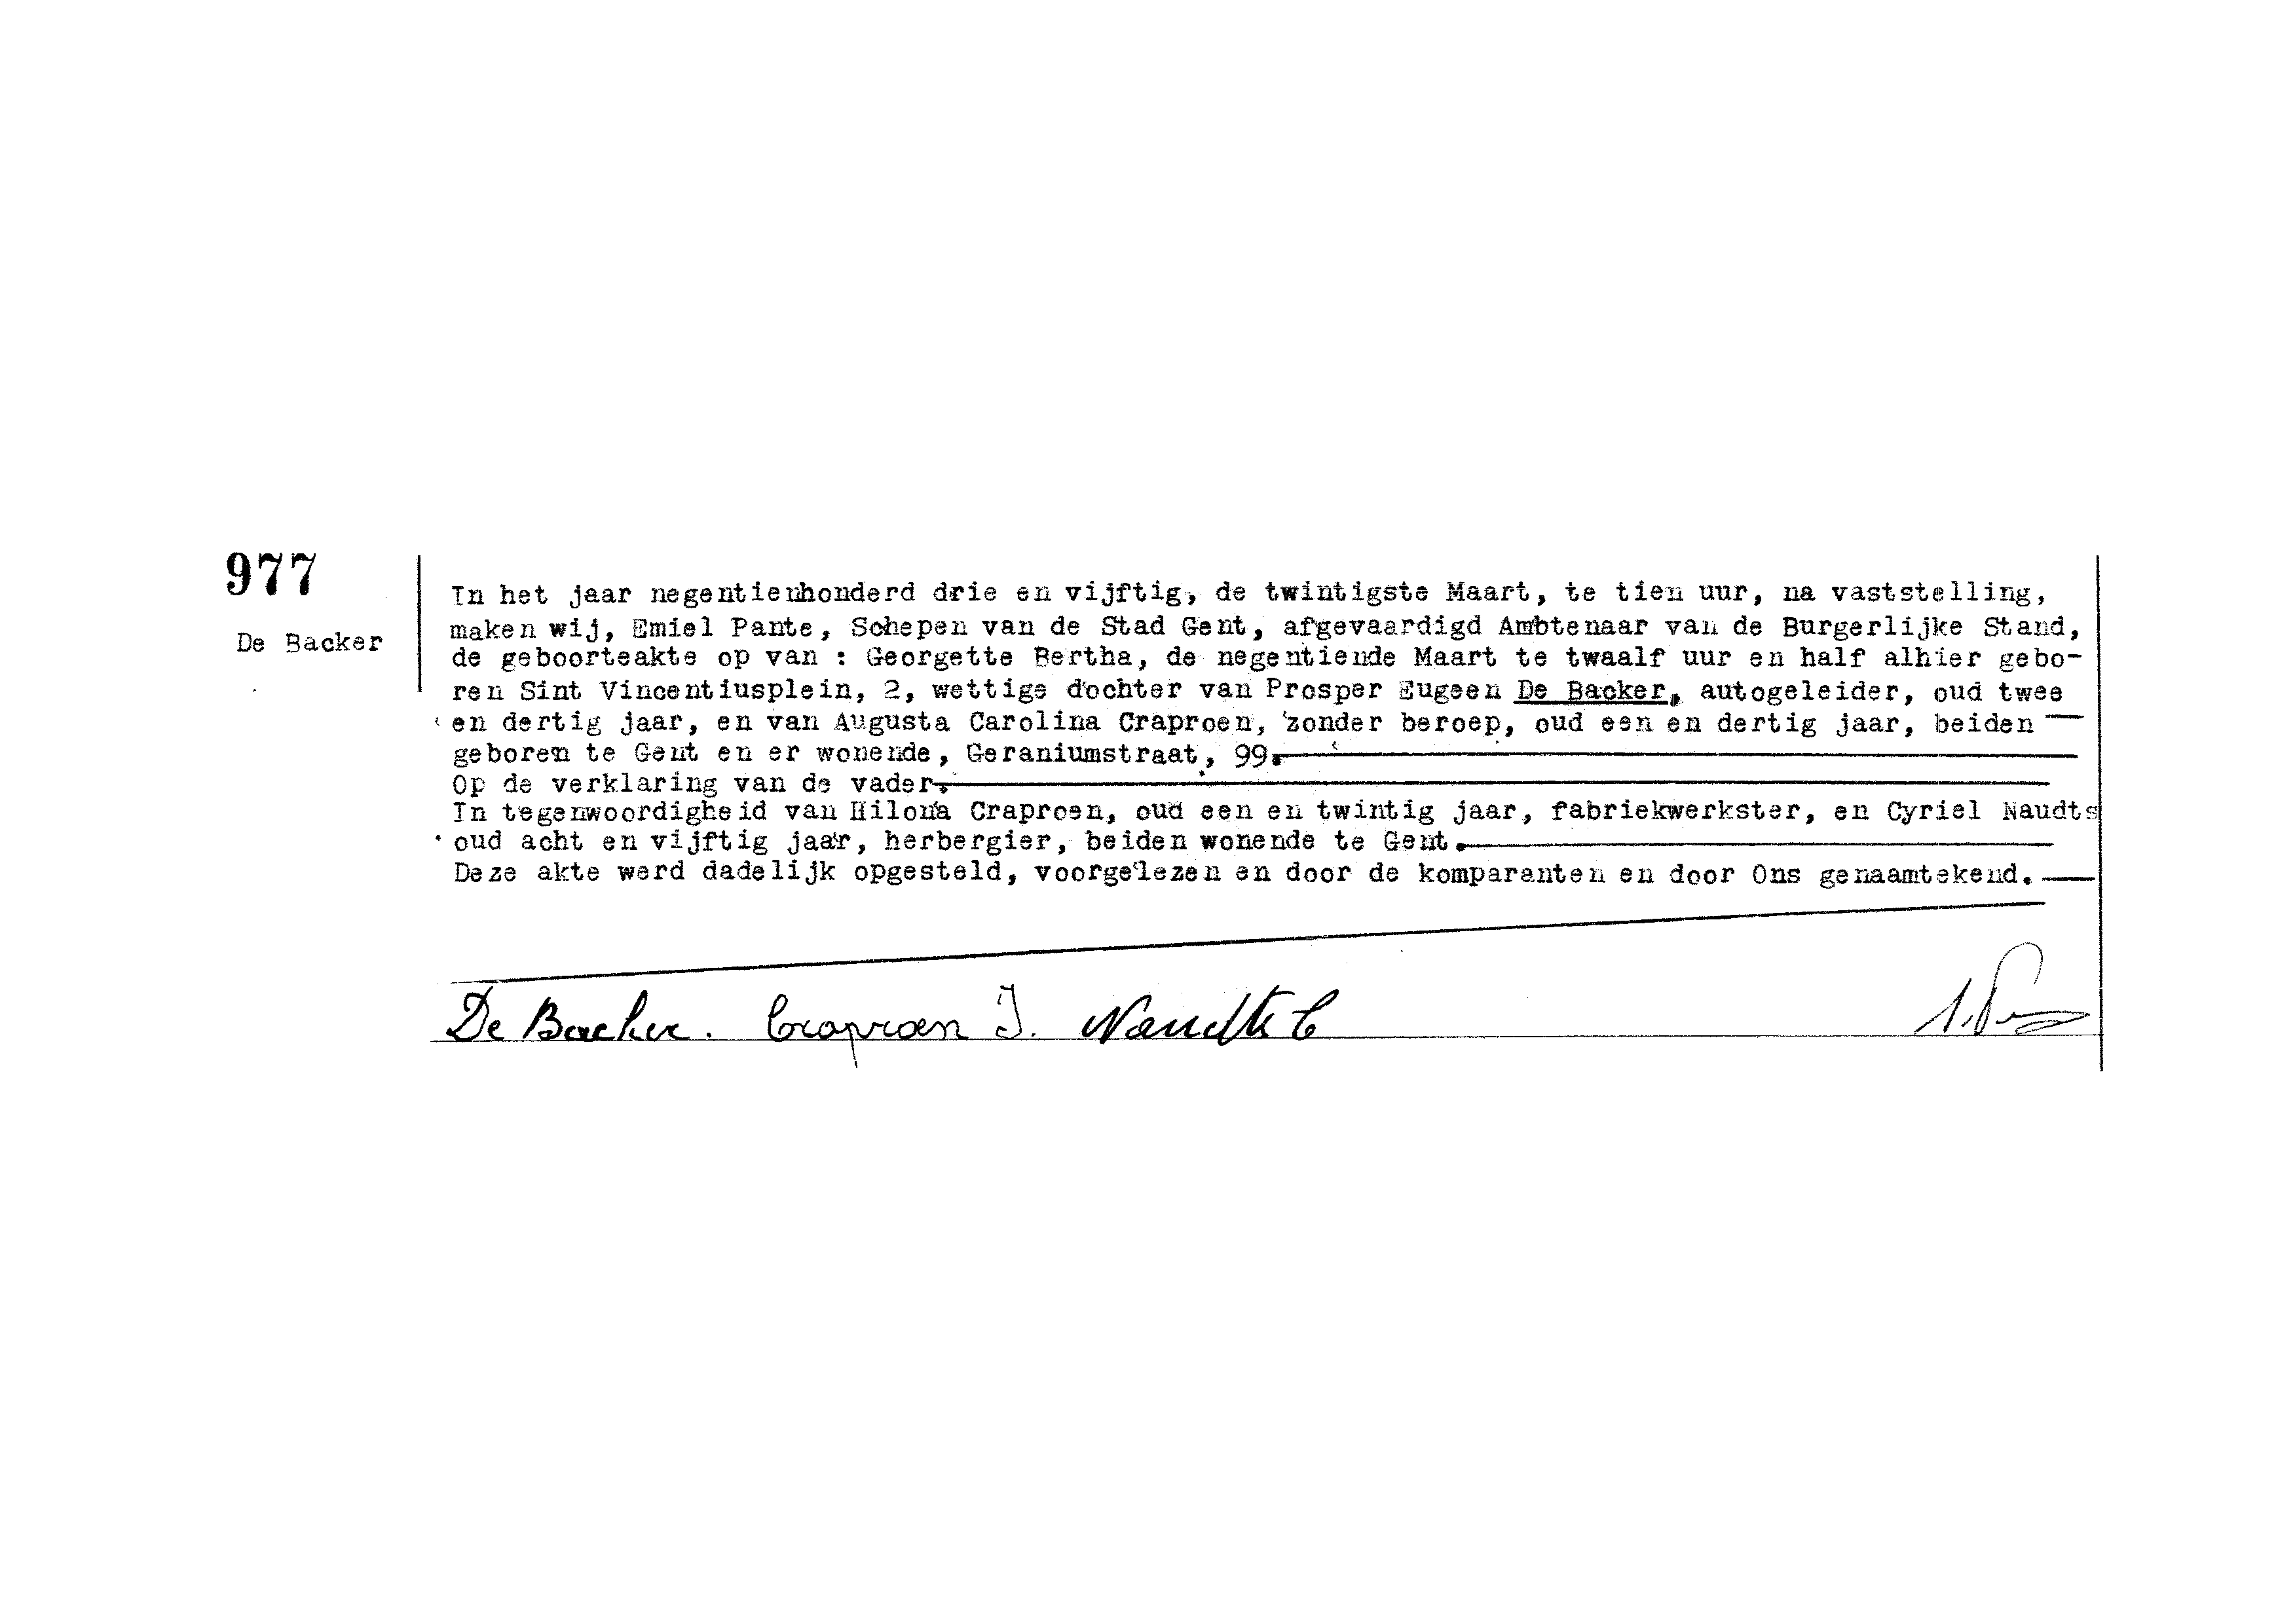 977
De Backer
In het jaar negentienhonderd drie en vijftig, de twintigste Maart, te tien uur, na vaststelling,
maken wij, Emiel Pante, Schepen van de Stad Gent, afgevaardigd Ambtenaar van de Burgerlijke Stand,
de geboorteakte op van : Georgette Bertha, de negentiende Maart te twaalf uur en half alhier gebo-
ren Sint Vincentiusplein, 2, wettige dochter van Prosper Eugeen De Backer, autogeleider, oud twee
en dertig jaar, en van Augusta Carolina Craproen, zonder beroep, oud een en dertig jaar, beiden —
geboren te Gent en er wonende, Geraniumstraat, 99.
Op de verklaring van de vader.
In tegenwoordigheid van Hilona Craproen, oud een en twintig jaar, fabriekwerkster, en Cyriel Naudts
oud acht en vijftig jaar, herbergier, beiden wonende te Gent.
Deze akte werd dadelijk opgesteld, voorgelezen en door de komparanten en door Ons genaamtekend. —
De Backer. Craproen I. Naudts C